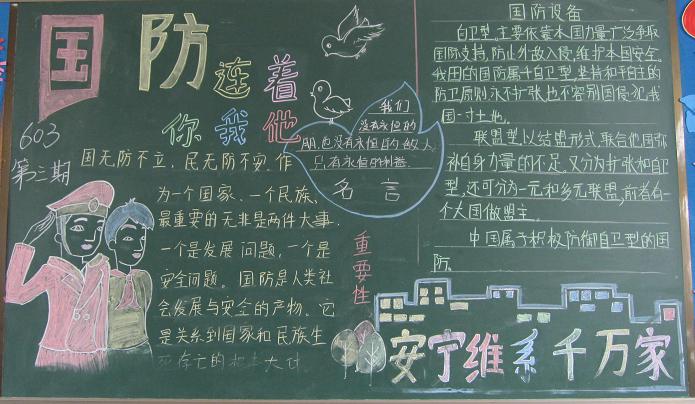 国防连着
你我他
603
第三期
国无防不立，民无防不安。作
为一个国家、一个民族、
最重要的无非是两件大事.
一个是发展问题，一个是
安全问题。国防是人类社
会发展与安全的产物。它
是关系到国家和民族生
死存亡的 大计
重要性
我们
没有永恒的
朋，也没有永恒的敌人
只有永恒的利益.
名言
国防设备
自卫型，主要依靠本国力量，广泛争取
国际支持，防止外敌入侵，维护本国安全。
我国的国防属于自卫型，坚持和平自主的
防卫原则永不扩张也不容别国侵犯我
国一寸土地。
联盟型以结盟形式，联合他国弥
补自身力量的不足。又分为扩张和自卫
型，还可分为一元和多元联盟，前者有一
个大国做盟主。
中国属于积极防御自卫型的国
防。
安宁维系千万家